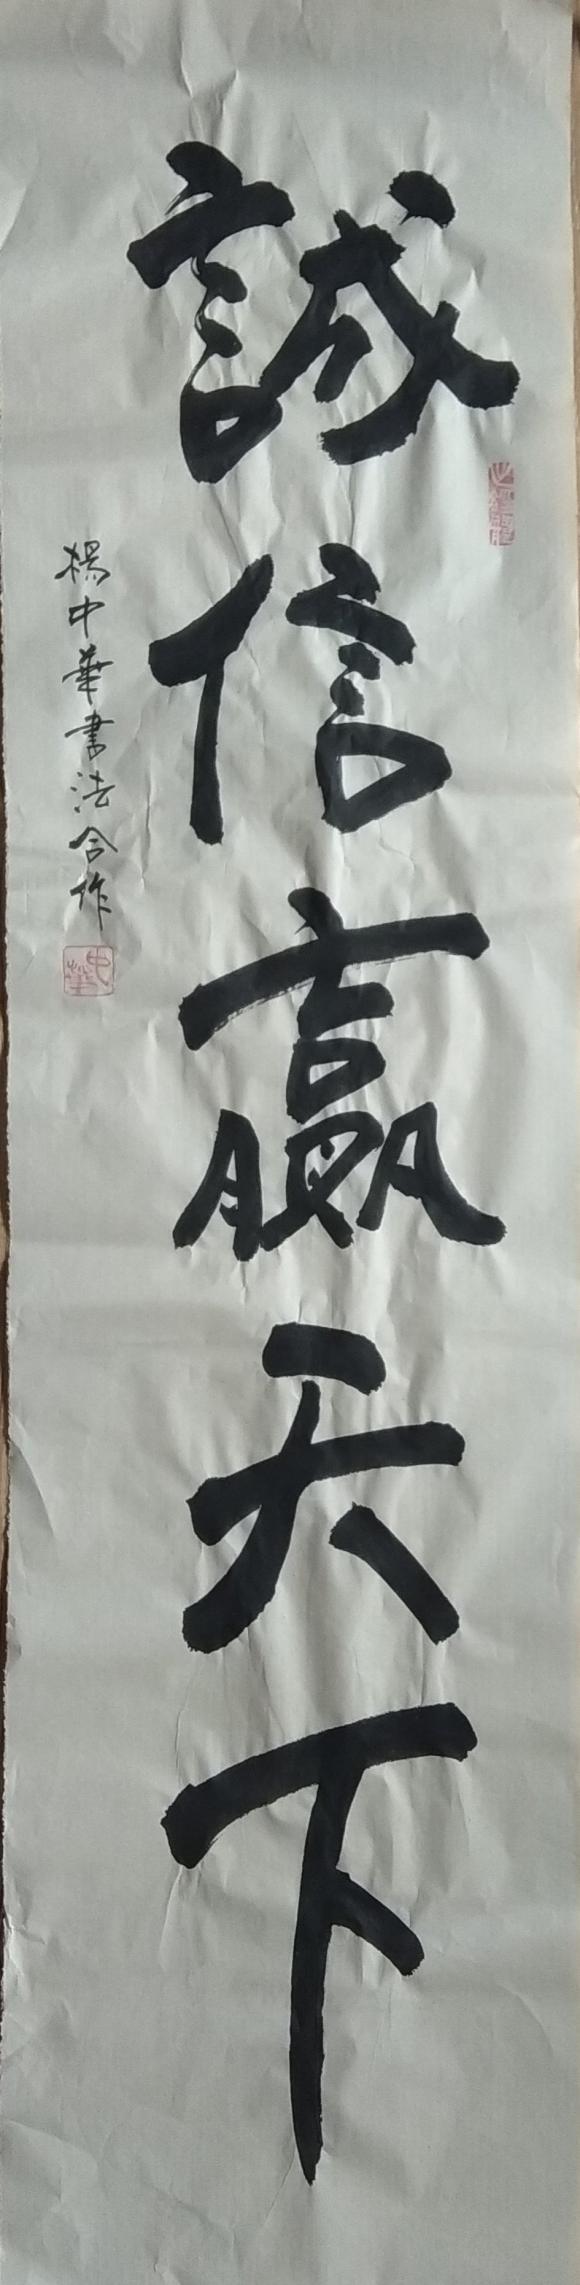 誠信贏天下
楊中華書法合作
中華